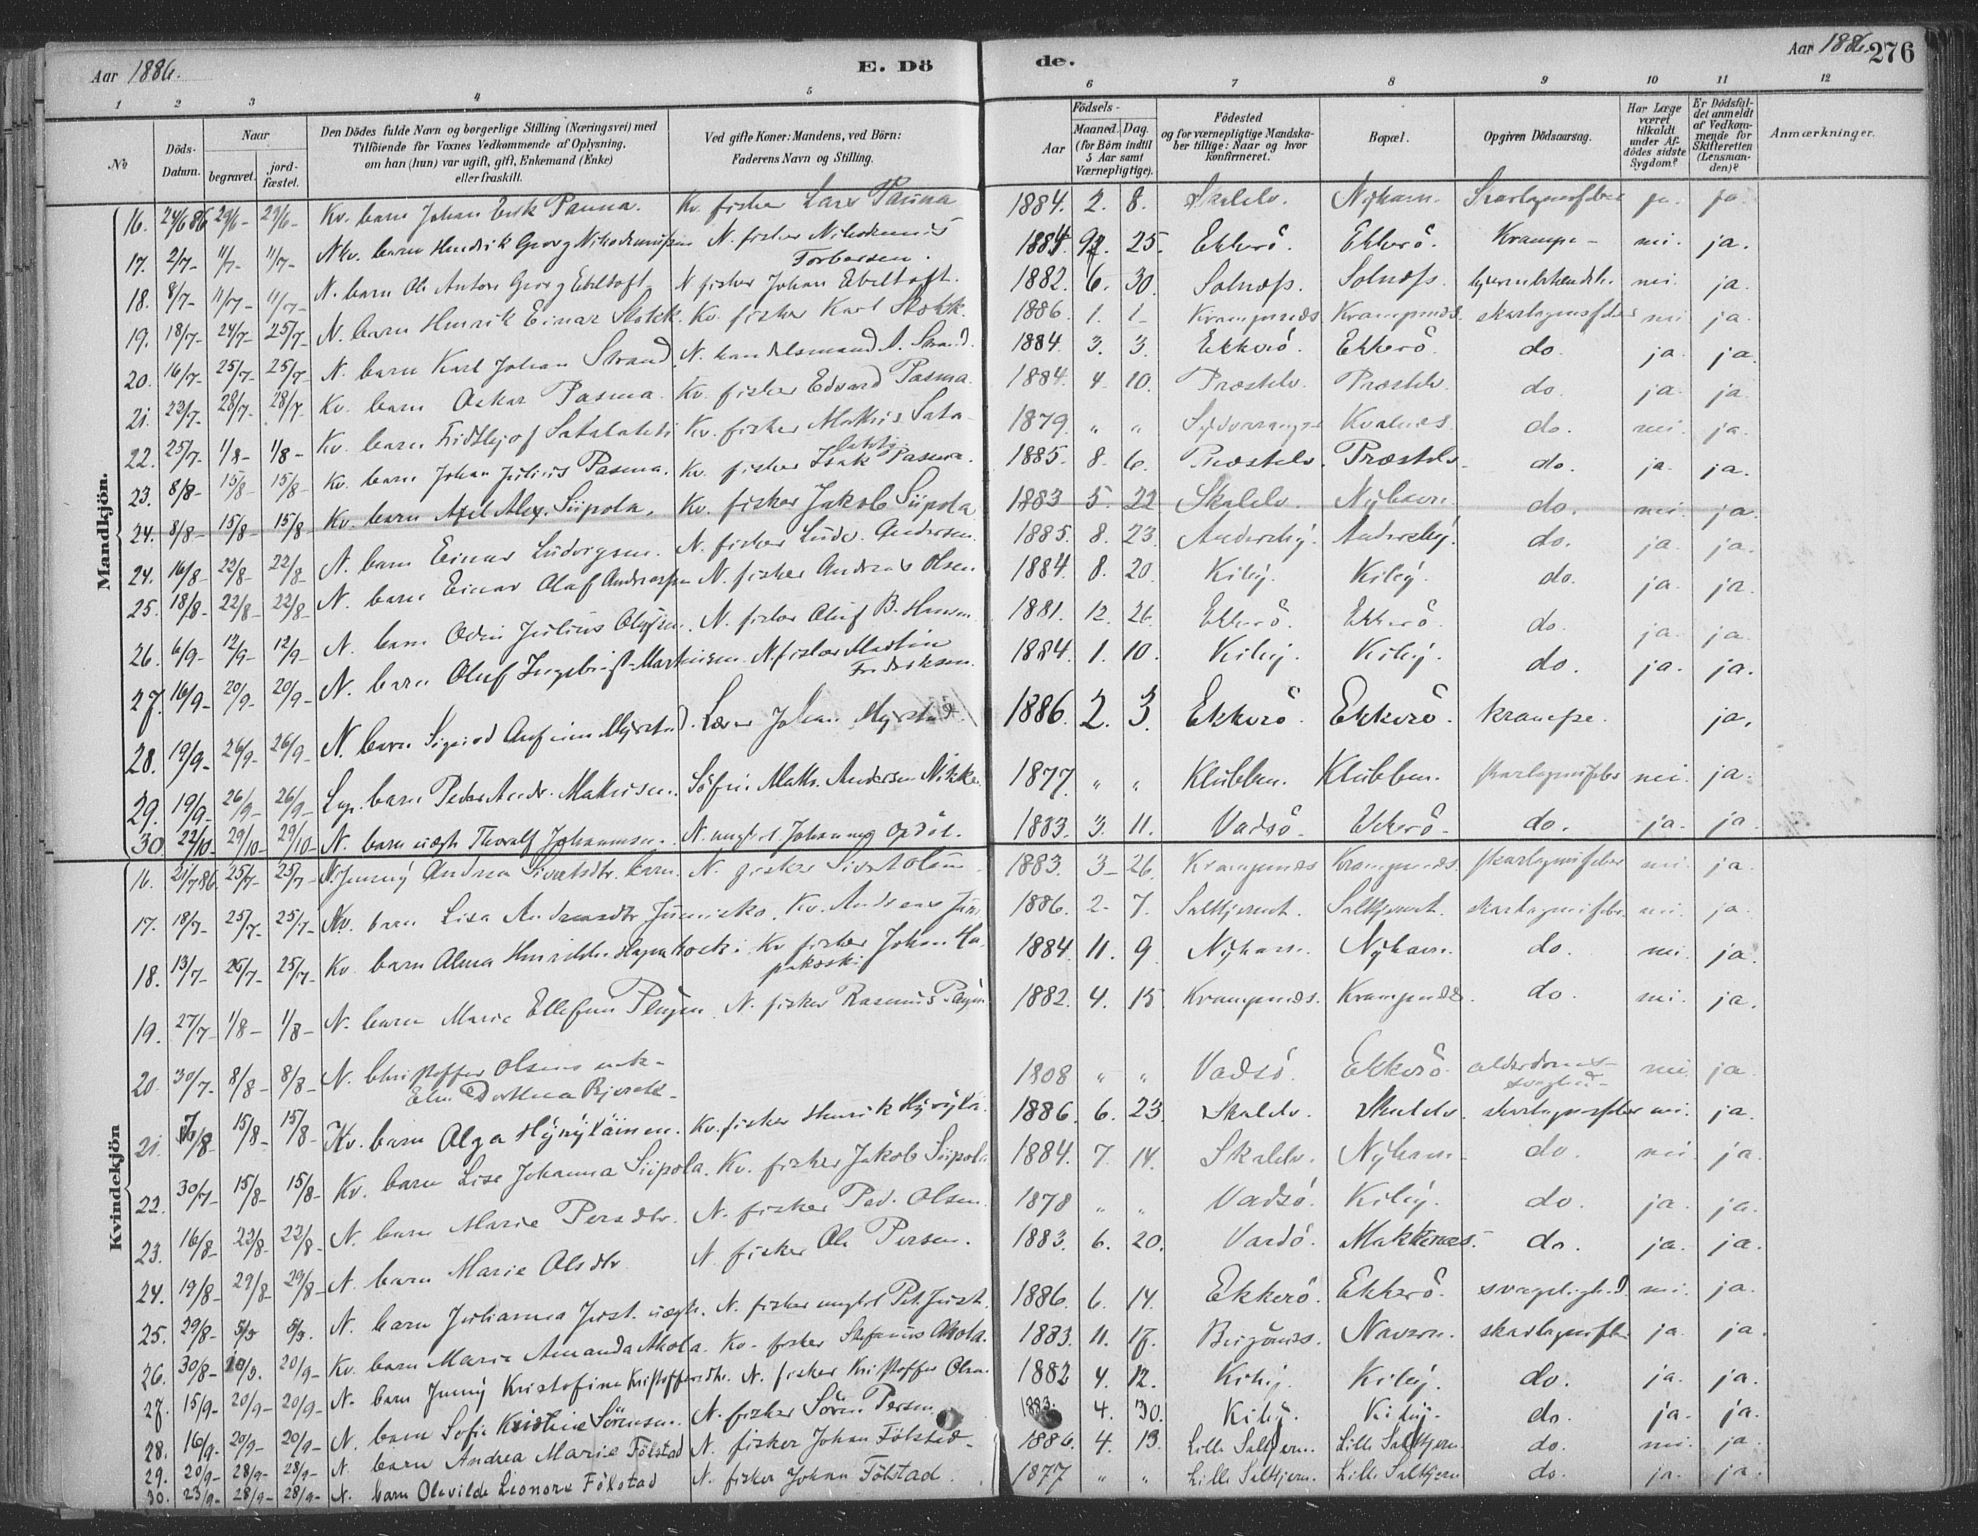 Aar 1886. E. Dö de. Aar 1886. 276
1 2 3 4 5 6 7 8 9 10 11 12
No
Döds-Datum.
Naar
begravet.
jord-fæstet.
Den Dödes fulde Navn og borgerlige Stilling (Næringsvei) med
Tilföiende for Voxnes Vedkommende af Oplysning,
om han (hun) var ugift, gift, Enkemand (Enke)
eller fraskilt.
Ved gifte Koner: Mandens, ved Börn:
Faderens Navn og Stilling.
Födsels-
Aar
Maaned. Dag.
(for Börn indtil
5 Aar samt
Værnepligtige).
Födested
og for værnepligtige Mandska-
ber tillige: Naar og hvor
konfirmeret.
Bopæl.
Opgiven Dödsaarsag.
Har Læge
været
tilkaldt
under Af-
dödes sidste
Sygdom?
Er Dödsfal-
det anmeldt
af Vedkom-
mende for
Skifteretten
(Lensman-
den)?
Anmærkninger.
Mandkjön.
16. 24/6 86 29/6- 29/6- Kv. barn Johan Erik Pauna. Kv. fisker Lars Pauna 1884. 2. 8. Skaldv. Nyhavn. Skarlagensfeber ja. ja.
17. 2/7- 11/7- 11/7- Nkv. barn Hendrik Georg Nikodemussen N. fisker Nikodemus 1884. 25. Ekkerö. Ekkerö. Krampe- nei. ja.
18. 8/7- 11/7- 11/7- N. barn Ole Anton Georg Ebeltoft. N fisker Johan Ebeltoft. 1882. 6. 30. Salnæss. Salnæss. nei. ja.
19. 18/7- 24/7- 25/7- N. barn Henrik Einar Skokk. Kv. fisker Karl Skokk. 1886. 1. 1- Krampenæs Krampenæs. skarlagensfeber nei ja.
20. 16/7- 25/7- 25/7- N. barn Karl Johan Strand. N. handelsmand A. Strand. 1884. 3. 3. Ekkerö. Ekkerö. do. ja. ja.
21. 23/7- 28/7- 28/7- Kv. barn Oskar Pasma. Kv. fisker Edvard Pasma. 1884. 4. 10. Præstelv. Præstelv. do. ja. ja.
22. 25/7- 1/8- 1/8- Kv. barn Fridthjof Satalahti Kv. fisker Mathis Sata-lahti. 1879. " " Sydvaranger Kvalnes. do. nei. ja.
23. 8/8- 15/8- 15/8- Kv. barn Johan Julius Pasma. Kv. fisker Isak Pasma. 1885. 8. 6. Præstelv. Præstelv. do. ja. ja.
24. 8/8- 15/8- 15/8- Kv. barn Axel Alex. Siipola. Kv. fisker Jakob Siipola 1883 5. 22 Skaldv. Nyhavn. do. nei. ja.
24. 16/8- 22/8- 22/8- N. barn Einar Ludvigsen. N. fisker Ludv. Andersen. 1885. 8. 23. Andersby. Andersby. do. ja. ja.
25. 18/8- 22/8- 22/8- N. barn Einar Olaf Andreassen N. fisker Andreas Olsen. 1884. 8. 20. Kiby. Kiby. do. ja. ja.
26. 6/9- 12/9- 12/9- N. barn Odin Julius Olufsen. N. fisker Oluf B. Hansen 1881. 12. 26. Ekkerö. Ekkerö. do. ja. ja.
27. 16/9- 20/9- 20/9- N. barn Oluf Ingebrigt Martinsen. N. fisker Martin Fredriksen. 1884. 1. 10. Kiby. Kiby. do. ja. ja.
28. 19/9- 26/9- 26/9- N. barn Sigurd Myrstad. Lærer Johan Myrstad. 1886. 2. 3. Ekkerö. Ekkerö. krampe. ja.
29. 19/9- 26/9- 26/9- Lap. barn Peder Andr. Mathisen. Söfin. Math. Andersen Nikke. 1877. " " Klubben. Klubben. skarlagensfeber nei. ja.
30. 22/10 29/10- 29/10- N. barn uægte Thoralf Johannesen. N. ungkarl Johannes Opdöl. 1883. 3. 11. Vadsö. Ekkerö. do. ja. ja.
Kvindekjön
16. 21/7 86. 25/7- 25/7- N. Jenny Andrea Sivertsdtr. barn. N. fisker Sivert Olsen 1883. 3- 26. Krampenæs Krampenæs. skarlagensfeber nei ja.
17. 18/7- 25/7- 25/7- Kv. barn Lisa Andreasdtr. Junisko. Kv. Andreas Jun. 1886. 2- 7. Saltkjernet. Saltkjernet. skarlagensfeber. nei. ja.
18. 13/7- 25/7- 25/7- Kv. barn Alma Henrikke Hapakoski. Kv fisker Johan Ha-pakoski 1884. 11. 9. Nyhavn. Nyhavn. do. nei. ja.
19. 27/7- 1/8- 1/8- N. barn Marie Ellefine N. fisker Rasmus 1882. 4. 15. Krampenæs. Krampenæs. do. nei. ja.
20. 30/7- 8/8- 8/8- N. Christoffer Olsens enke- Elen Dorthea Bjerek- 1808 " " Vadsö. Ekkerö. alderdoms-svaghed- nei. ja.
21. 7/8- 15/8- 15/8- Kv. barn Olga Hyryläinen. Kv. fisker Henrik Hyrylä. 1886. 6. 23. Skaldv. Skaldv. skarlagensfeber nei. ja.
22. 30/7- 15/8- 15/8- Kv. barn Lise Johanna Siipola. Kv. fisker Jakob Siipola 1884. 7. 14. Skaldv. Nyhavn. do. nei. ja.
23. 16/8- 22/8- 22/8- N. barn Marie Persdtr. N. fisker Ped. Olsen. 1878 " " Vadsö. Kiby. do. ja. ja.
24. 19/8- 29/8- 29/8- N. barn Marie Olsdtr. N. fisker Ole Persen. 1883. 6. 20. Vardö. Makkenæs. do. ja. ja.
25. 29/8- 5/9 5/9. N. barn Julianna Just. uægte. N. fisker ungkarl Pet. Just. 1886. 6. 14. Ekkerö. Ekkerö. svagelighed. nei. ja.
26. 30/8- 20/9. 20/9- Kv. barn Maria Amanda Akola. Kv. fisker Stefanus Akola. 1883. 11. Navern. skarlagensfeber ja. ja.
27. 15/9- 20/9- 20/9- N. barn Jenny Kristofine Kristoffersdtr. N. fisker Kristoffer Olsen 1882 4. 12. Kiby. Kiby. do. ja. ja.
28. 16/9- 20/9- 20/9- N. barn Sofie Kristine Sörensen. N. fisker Sören Persen. 1883. 4. 30. Kiby. Kiby. do. ja. ja.
29. 20/9- 28/9- 28/9- N. barn Andrea Marie Fölstad N. fisker Johan Fölstad- 1886. 4. 13. Lille Saltkjern. Lille Saltkjern do. nei. ja.
30. 23/9- 28/9- 28/9- N. barn Olevilde Leonora Fölstad N. fisker Johan Fölstad. 1877 " " Lille Saltkjern. Lille Saltkjern do. ja. ja.